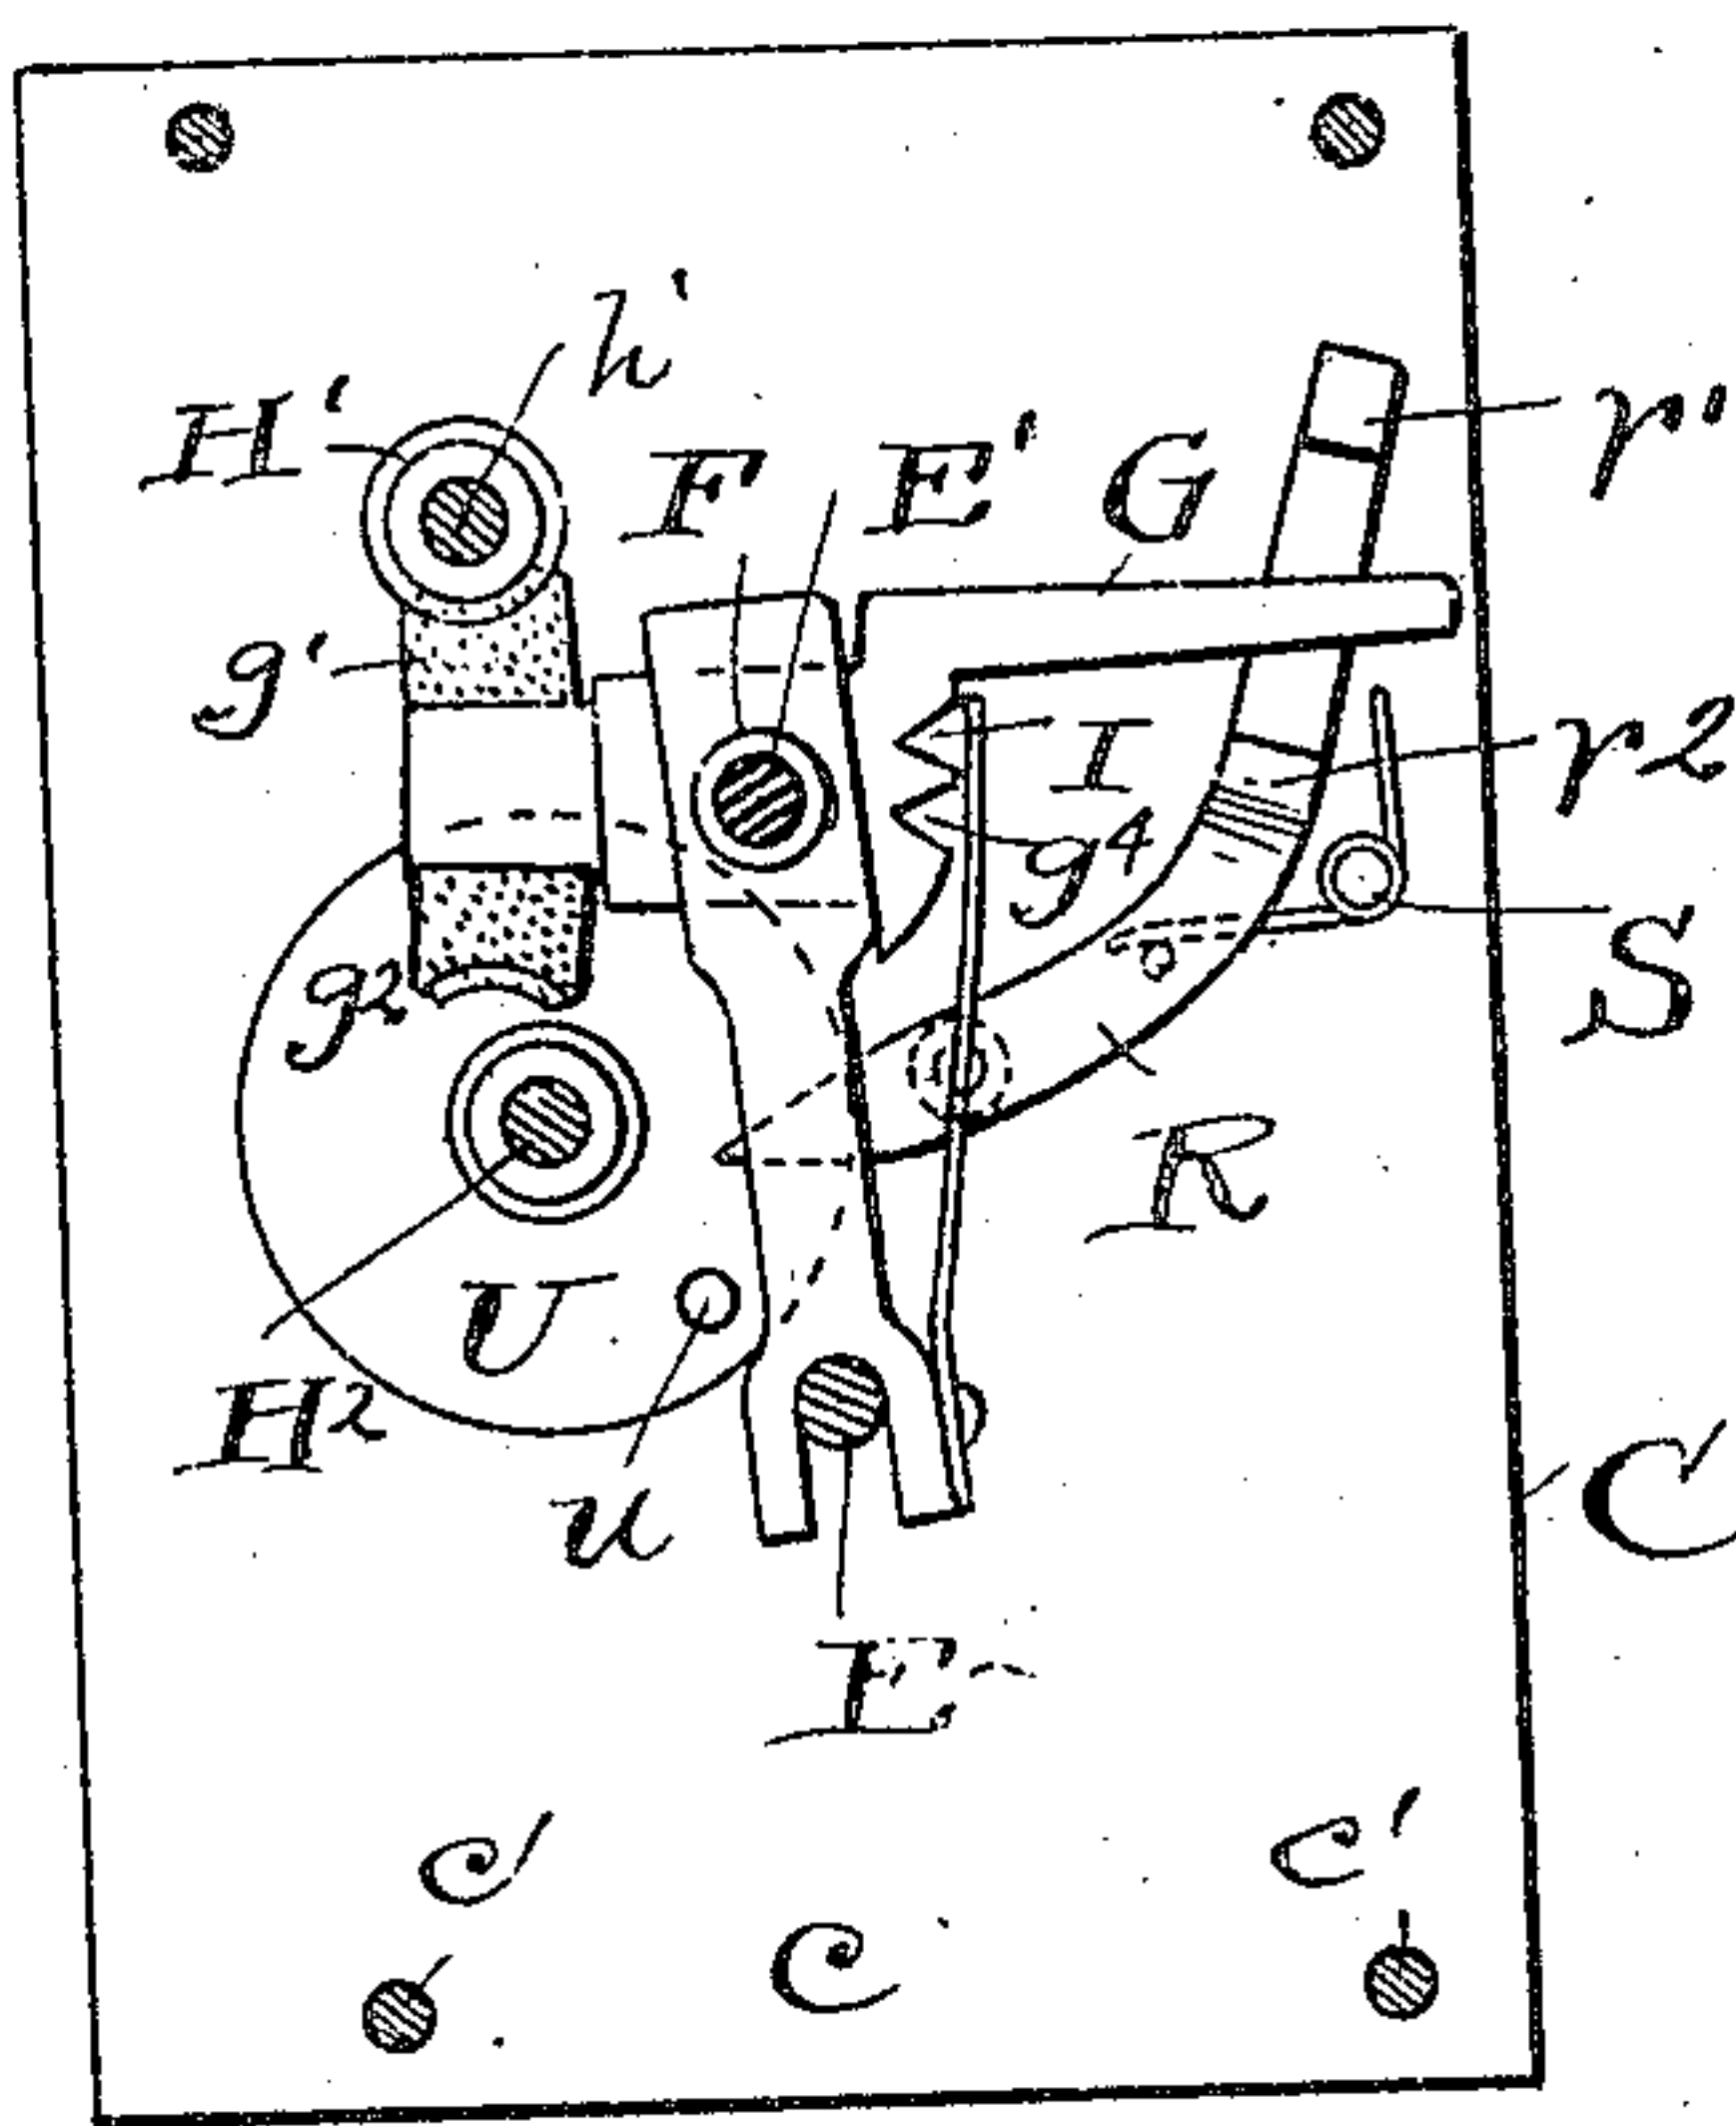 h'
H' F E' G r'
g' I r²
g⁴
g² S
R
U
H² C
u
E
c' c'
C